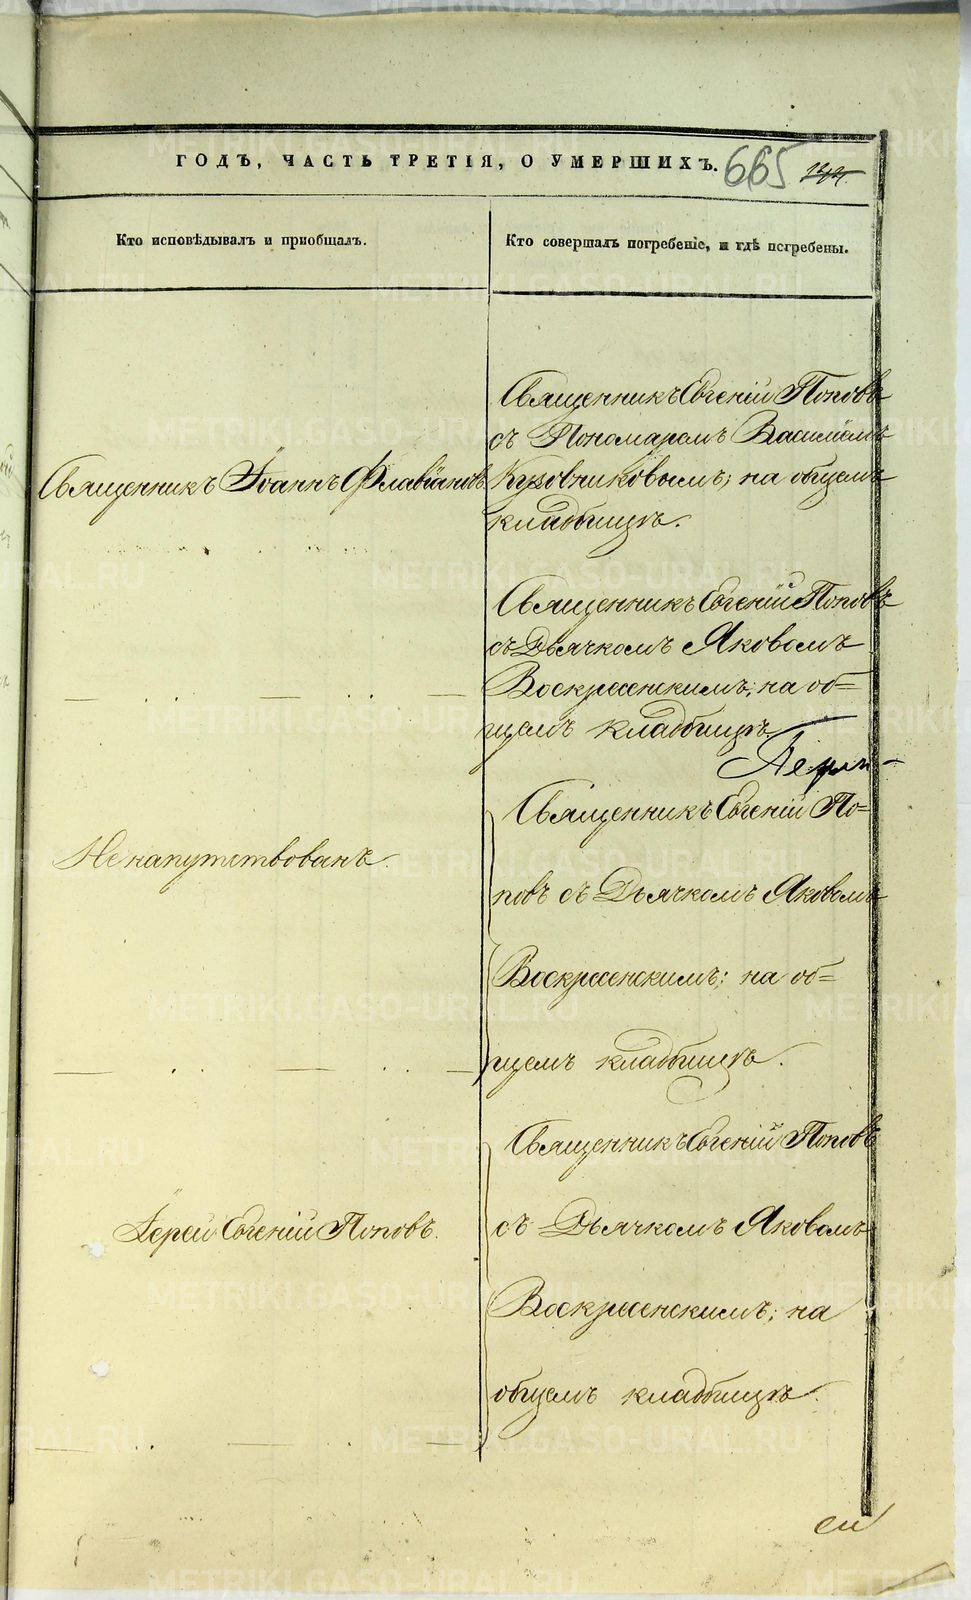 ГОДЪ, ЧАСТЬ ТРЕТІЯ, О УМЕРШИХЪ. 665
Кто исповѣдывалъ и пріобщалъ.
Кто совершалъ погребеніе, и гдѣ погребены.
Священникъ Іоаннъ Флавіановъ
Священникъ Евгеній Поповъ
съ Пономаремъ Василіемъ
Кузовниковымъ; на общемъ
кладбищѣ.
Священникъ Евгеній Поповъ
съ Дьячкомъ Яковомъ
Воскресенскимъ; на об=
щемъ кладбищѣ.
Ненапутствованъ.
Священникъ Евгеній По=
повъ съ Дьячкомъ Яковомъ
Воскресенскимъ; на об=
щемъ кладбищѣ.
Іерей Евгеній Поповъ.
Священникъ Евгеній Поповъ
съ Дьячкомъ Яковомъ
Воскресенскимъ; на
общемъ кладбищѣ.
METRIKI.GASO-URAL.RU